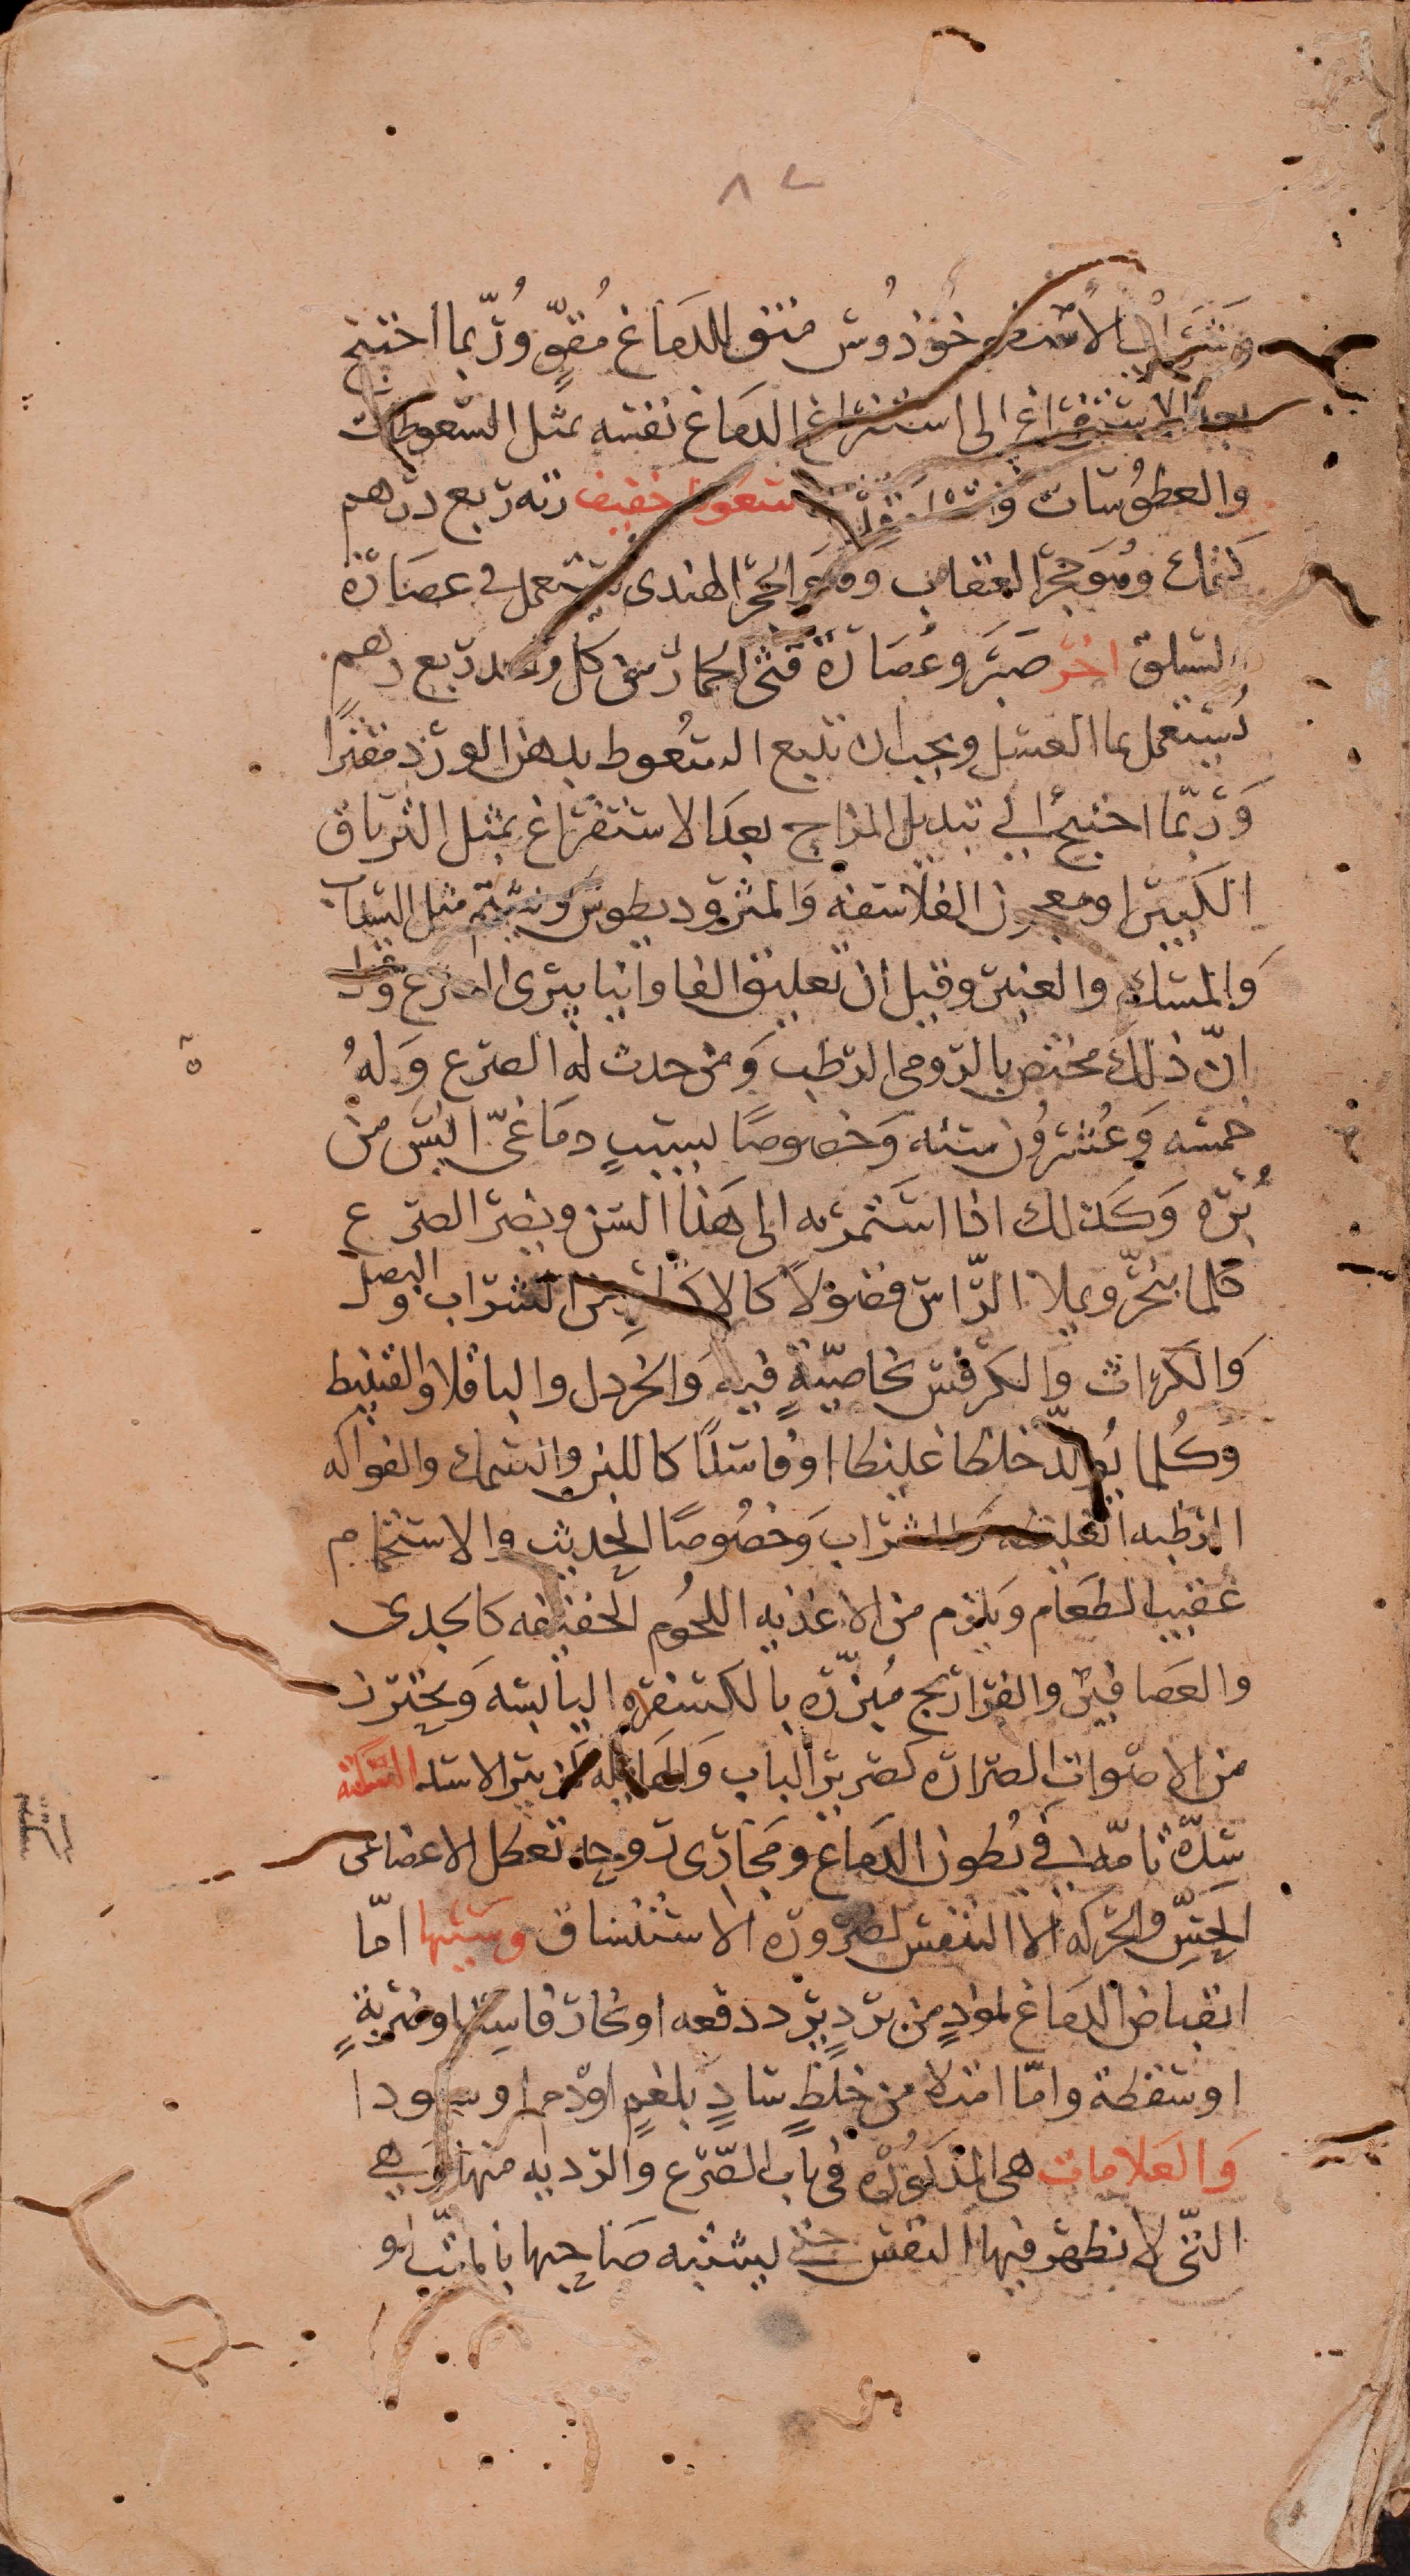 ٨٢
وشراب الاسطوخوذوس منق للدماغ مُقوٍّ ورُبّما احتيج
بعد الاستفراغ الى استفراغ الدماغ نفسه بمثل السّعوطات
والعطوُسات سعوط خفيف زنه ربع درهم
وهُوَ حجر العقاب وهو الحجر الهندى يستعمل في عصَارة
السّلق اخر صبَر وعُصَارة قثى الحمار من كل واحد ربع درهم
يُستعمل بما العسَل ويجب ان تتبع السّعُوط بدهن الورد مفترًا
وَرُبّما احتيج الي تبديل المزاج بعدَ الاستفرَاغ بمثل الترياق
الكبير او معجون الفلاسفه وَالمثروديطوس وشمّ مثل السَداب
وَالمسك والعنبر وقيل ان تعليق الفاوانيا يبرى الصرع وَ
انّ ذلكَ مختص بالرّومى الرطب وَمن حدث له الصرع وَلهُ
خمسَه وَعُشرُون سَنه وَخصوصًا لسببٍ دمَاغىّ ايسَ من
بُرْه وَكذلك اذا استَمر به الى هَذا السّن ويضرّ الصرَع
كلما يبخرّ ويملا الرّاس فضولاً كالاكثار من الشرَاب والبصل
وَالكرّاث وَالكرفس بخاصيّةٍ فيه وَالخردل والباقلا والقنبيط
وَكُلما يُولّد خلطا غليظا او فاسدًا كاللبن والسّمك والفواكه
الرّطبه الغليظه وَالشرَاب وَخصُوصًا الحديث والاستحمام
عُقيب الطعَام وَيلزم من الاغذيه اللحُوم الخفيفه كالجدى
والعصَافير والفرَاريج مُبزّره بالكسفره اليابسه وَيحترز
من الاصوات الصرّاره كصرير الباب وَالهايله كزيير الاسد السّكته
سُدّه تامّه في بُطون الدماغ ومَجارى روحه تعطل الاعضا عن
الحسِّ والحرَكه الا التنفس لضرُورة الاستنشاق وسَببها امّا
انقباض الدمَاغ لموذٍ من برَدٍ يرد دفعه او بخار فاسِد او ضربةٍ
او سَقطة وامّا امتلا من خلطٍ سَادٍ بلغمٍ او دم او سودا
وَالعَلامات هى المذكورُة فى باب الصّرع وَالرديه منها وَهي
التّى لا يظهر فيها النفس حتى ليشتبه صَاحبها بالميّت او